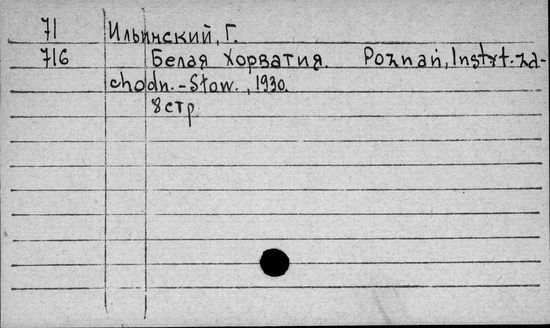 71 Ильинский, Г.
716 Белая Хорватия. Poznań, Instyt. za-
chodn.-Słow., 1930.
8 стр.